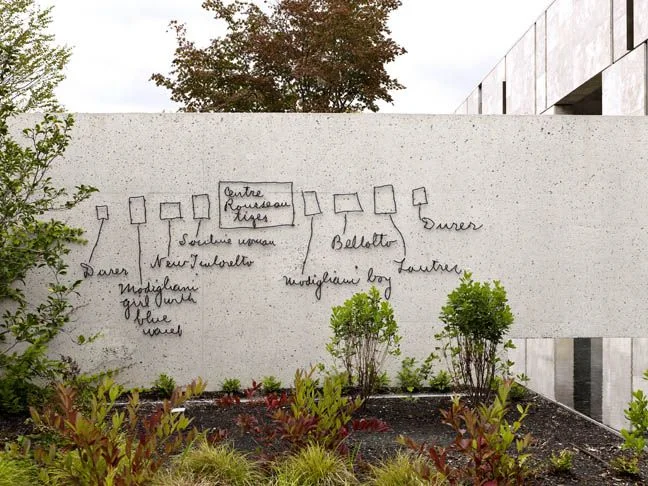 Centre
Rousseau
tiger
Durer
Soutine woman
Bellotto
Durer
New Tintoretto
Lautrec
Modigliani
girl with
blue
Modigliani boy